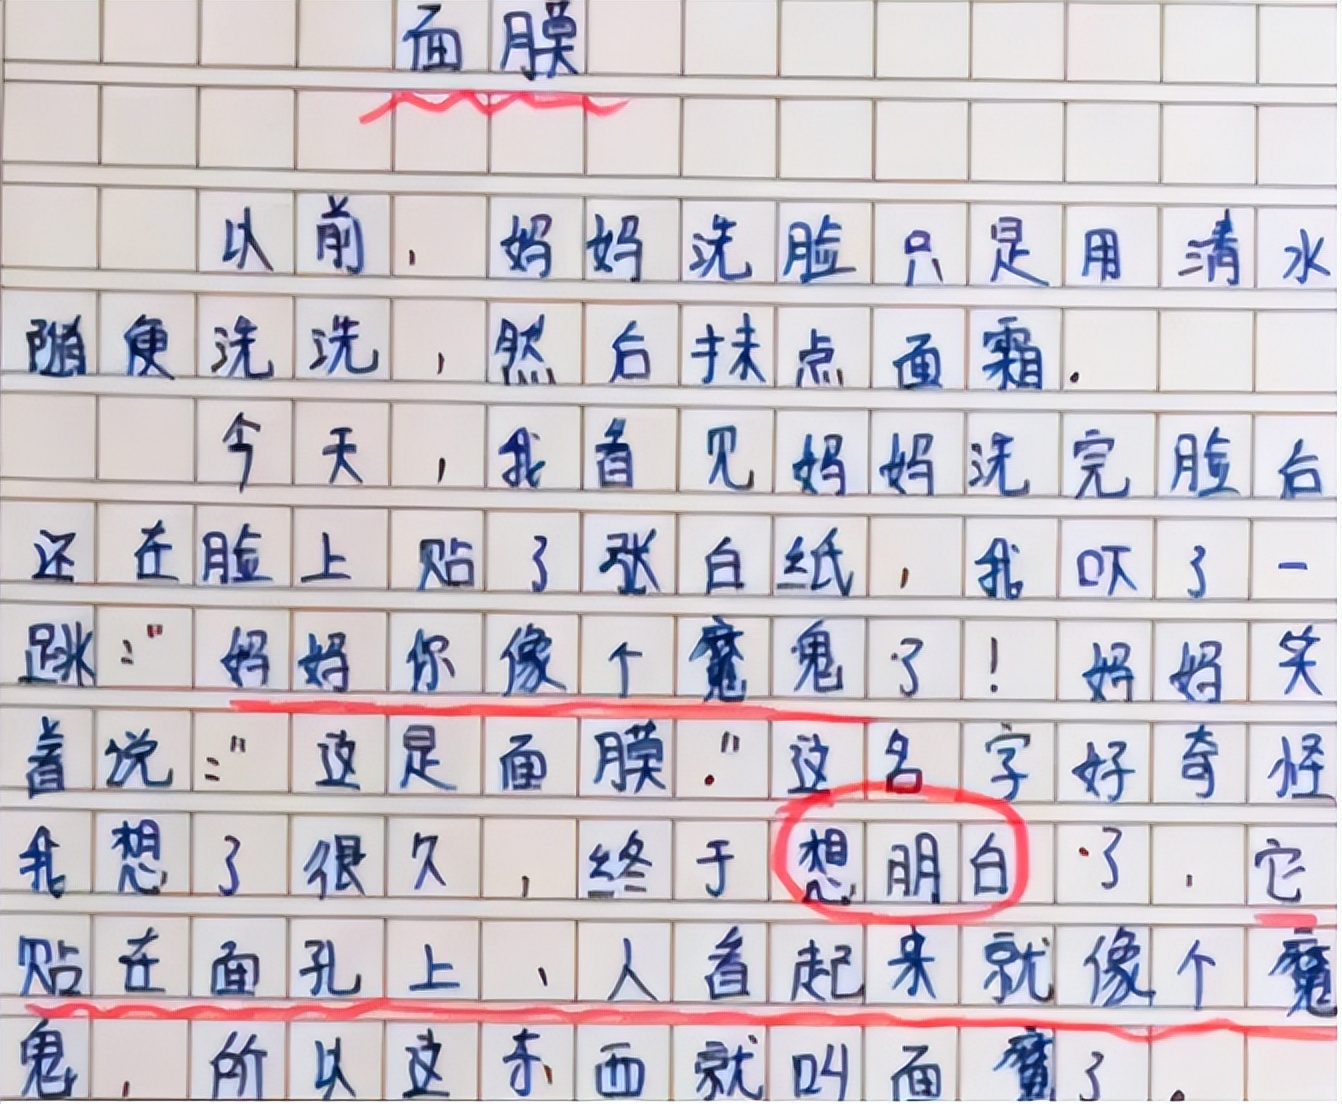 面膜
以前，妈妈洗脸只是用清水
随便洗洗，然后抹点面霜．
今天，我看见妈妈洗完脸后
还在脸上贴了张白纸，我吓了一
跳：“妈妈你像个魔鬼了！妈妈笑
着说：“这是面膜．”这名字好奇怪
我想了很久，终于想明白了，它
贴在面孔上，人看起来就像个魔
鬼，所以这东西就叫面魔了．